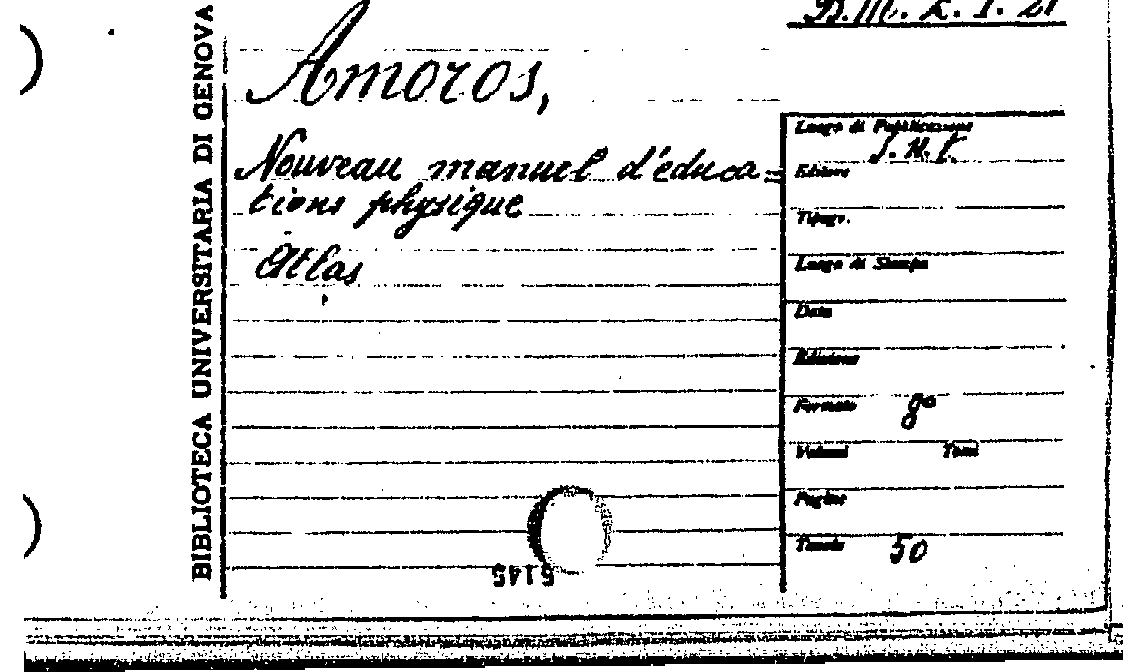 BIBLIOTECA UNIVERSITARIA DI GENOVA
Amoros,
Nouveau manuel d'éduca=
tions physique
Atlas
Luogo di Pubblicazione
Editore
Tipogr.
Luogo di Stampa
Data
Edizione
Formato 8º
Volumi Tomi
Pagine
Tavole 50
5145